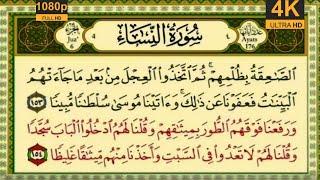 1080p
FULL HD
4K
ULTRA HD
Juz'
6
سُورَةُ النِّسَاء
Ayats
176
الصَّٰعِقَةُ بِظُلْمِهِمْ ۚ ثُمَّ اتَّخَذُوا الْعِجْلَ مِنْ بَعْدِ مَا جَاءَتْهُمُ
الْبَيِّنَٰتُ فَعَفَوْنَا عَنْ ذَٰلِكَ ۚ وَءَاتَيْنَا مُوسَىٰ سُلْطَٰنًا مُّبِينًا ١٥٣
وَرَفَعْنَا فَوْقَهُمُ الطُّورَ بِمِيثَٰقِهِمْ وَقُلْنَا لَهُمُ ادْخُلُوا الْبَابَ سُجَّدًا
وَقُلْنَا لَهُمْ لَا تَعْدُوا فِي السَّبْتِ وَأَخَذْنَا مِنْهُمْ مِّيثَٰقًا غَلِيظًا ١٥٤